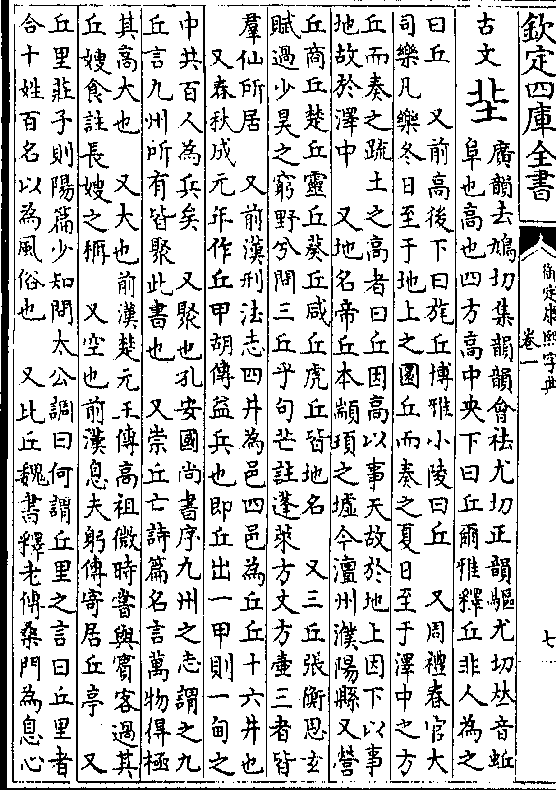 欽定四庫全書
御定康熙字典
卷一
七
古文𡊣
廣韻去鳩切集韻韻會袪尤切正韻驅尤切𠀤音蚯
阜也高也四方高中央下曰丘爾雅釋丘非人為之
曰丘　又前高後下曰旄丘博雅小陵曰丘　又周禮春官大
司樂凡樂冬日至于地上之圜丘而奏之夏日至于澤中之方
丘而奏之疏土之高者曰丘因高以事天故於地上因下以事
地故於澤中　又地名帝丘本顓頊之墟今澶州濮陽縣又營
丘商丘楚丘靈丘葵丘咸丘虎丘皆地名　又三丘張衡思玄
賦過少昊之窮野兮問三丘乎句芒註蓬萊方丈方壷三者皆
羣仙所居　又前漢刑法志四井為邑四邑為丘丘十六井也
又春秋成元年作丘甲胡傳益兵也即丘出一甲則一甸之
中共百人為兵矣　又聚也孔安國尚書序九州之志謂之九
丘言九州所有皆聚此書也　又崇丘亡詩篇名言萬物得極
其高大也　又大也前漢楚元王傳高祖微時嘗與賔客過其
丘嫂食註長嫂之稱　又空也前漢息夫躬傳寄居丘亭　又
丘里莊子則陽篇少知問太公調曰何謂丘里之言曰丘里者
合十姓百名以為風俗也　又比丘魏書釋老傳桑門為息心